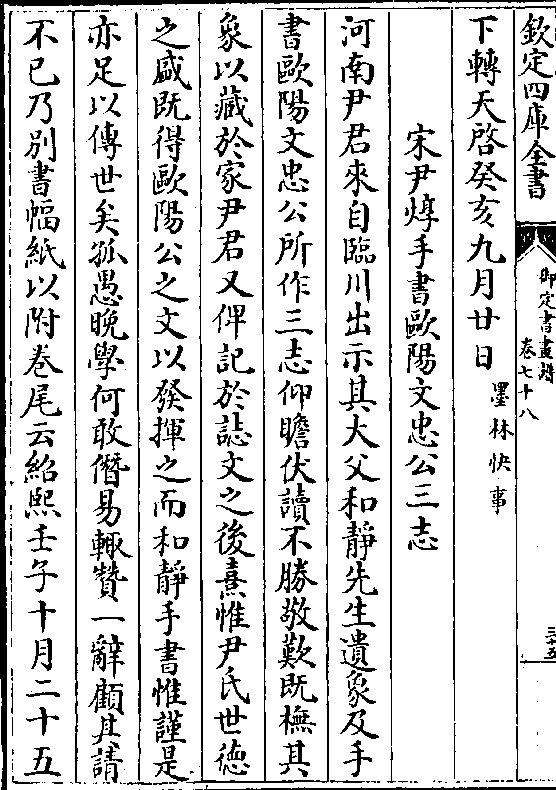 欽定四庫全書
御定書畫譜
卷七十八
三十五
下轉天啓癸亥九月廿日
墨林快事
宋尹焞手書歐陽文忠公三志
河南尹君來自臨川出示其大父和靜先生遺象及手
書歐陽文忠公所作三志仰瞻伏讀不勝敬歎既橅其
象以藏於家尹君又俾記於誌文之後熹惟尹氏世徳
之盛既得歐陽公之文以發揮之而和靜手書惟謹是
亦足以傳世矣孤愚晚學何敢僭易輙贊一辭顧其請
不已乃別書幅紙以附卷尾云紹熙壬子十月二十五